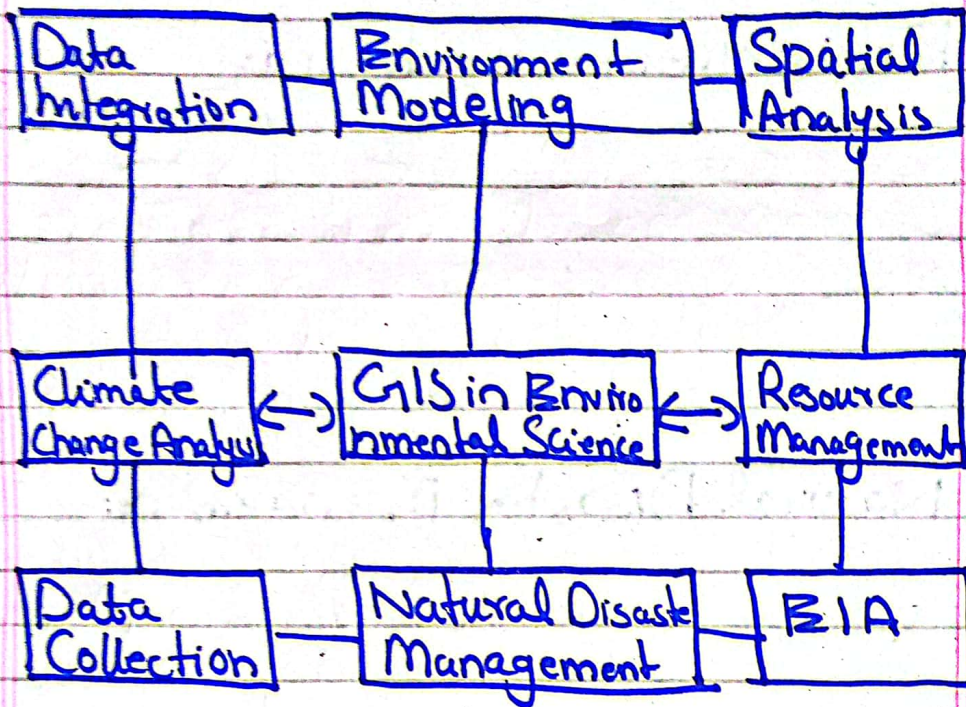 Data
Integration
Environment
Modeling
Spatial
Analysis
Climate
Change Analysi
GIS in Enviro
nmental Science
Resource
Management
Data
Collection
Natural Disaste
Management
EIA